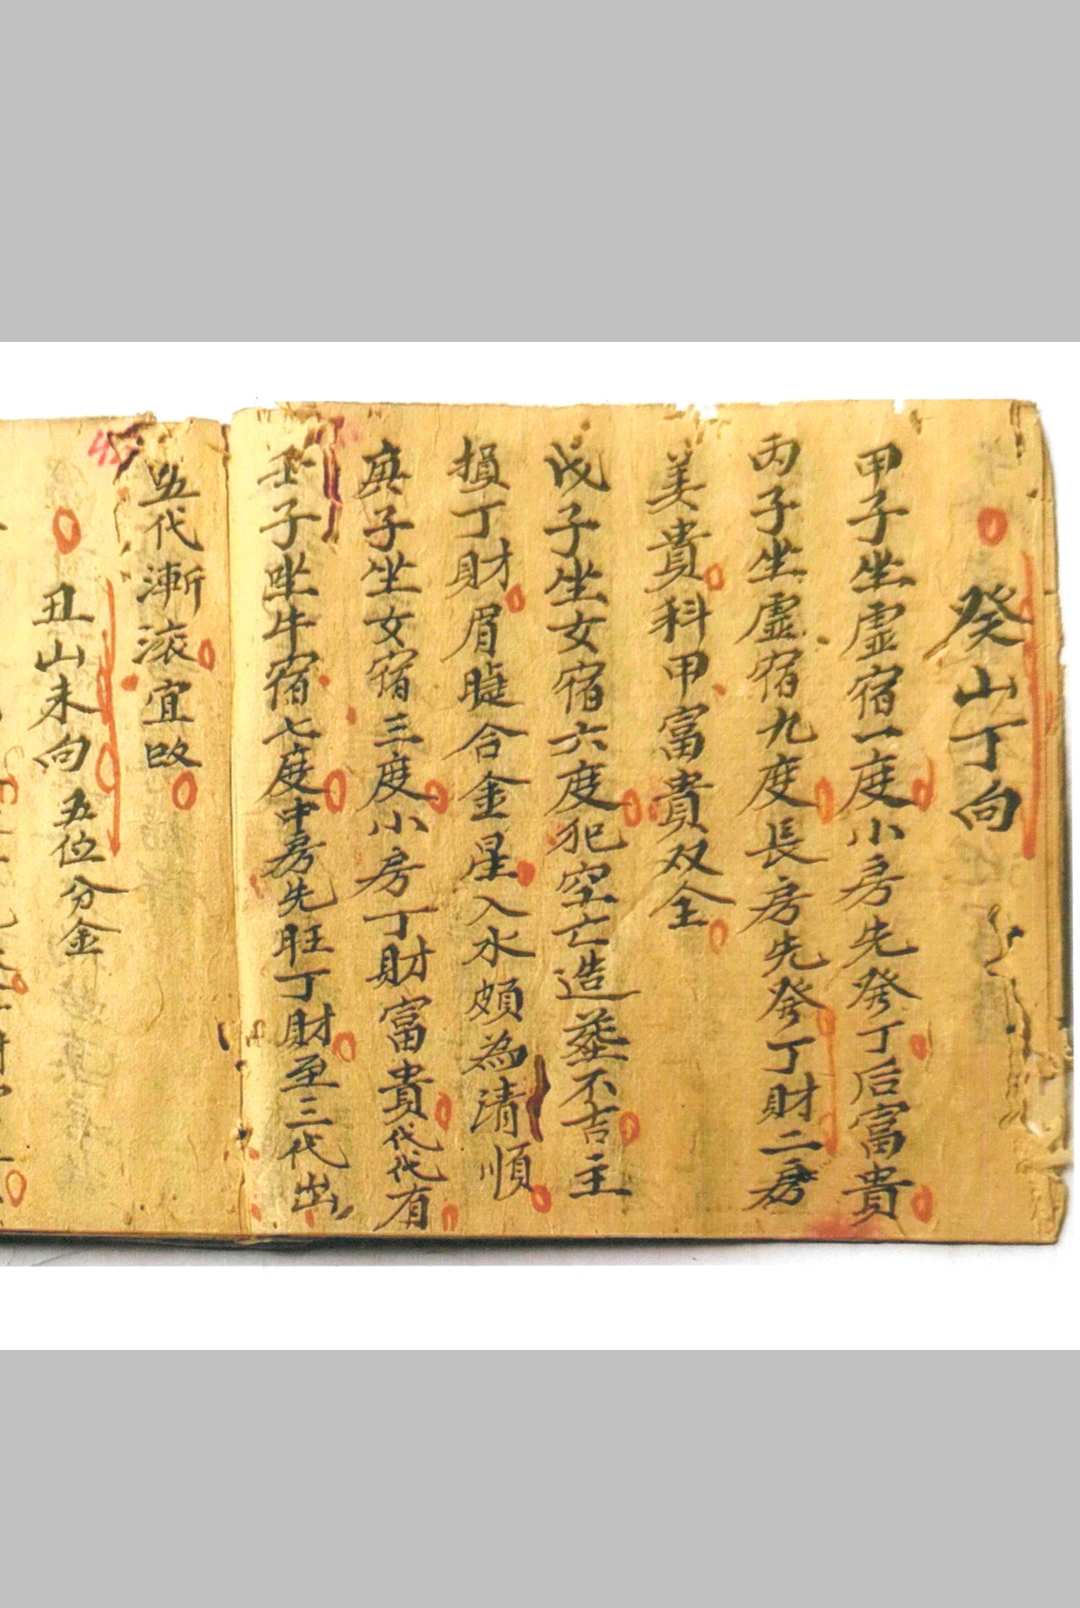 癸山丁向
甲子坐虚宿一度小房先發丁后富貴
丙子坐虚宿九度長房先發丁財二房
美貴科甲富貴双全
戊子坐女宿六度犯空亡造塟不吉主
損丁財眉睫合金星入水頗為清順
庚子坐女宿三度小房丁財富貴代代有
壬子坐牛宿七度中房先旺丁財至三代出
五代漸滚宜改
丑山未向五位分金